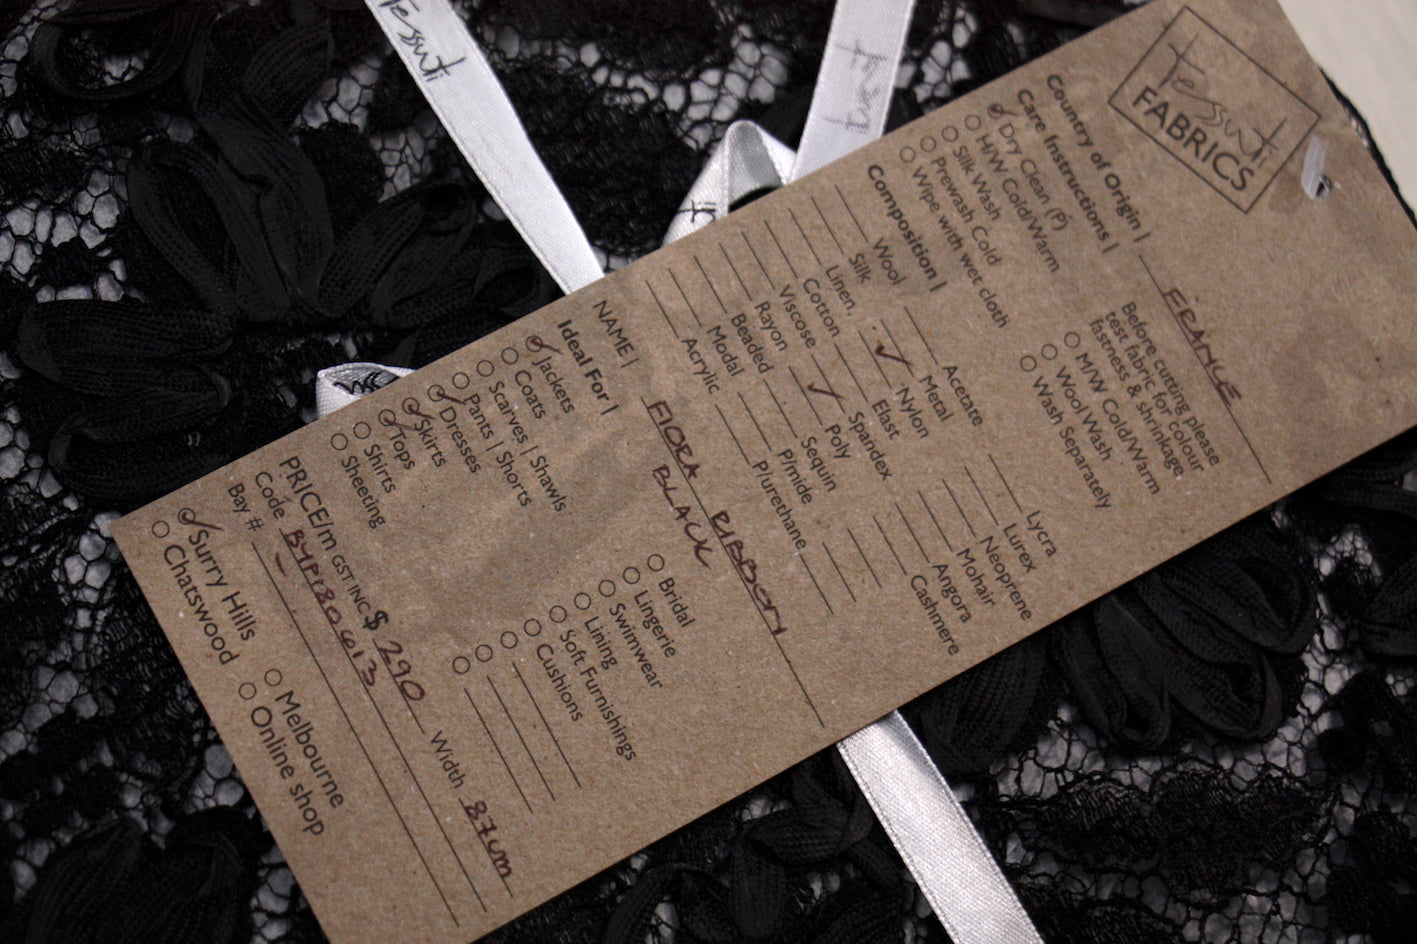 Tessuti
Tessuti
Tessuti
FABRICS
Country of Origin | FRANCE
Care Instructions |
Dry Clean (P)
H/W Cold/Warm
Silk Wash
Prewash Cold
Wipe with wet cloth
Before cutting please
test fabric for colour
fastness & shrinkage
M/W Cold/Warm
Wool Wash
Wash Separately
Composition |
Wool
Silk
Linen
Cotton
Viscose
Rayon
Beaded
Modal
Acrylic
Acetate
Metal
Nylon
Elast
Spandex
Poly
Sequin
P/mide
P/urethane
Lycra
Lurex
Neoprene
Mohair
Angora
Cashmere
NAME | FIORA RIBBONY
BLACK
Ideal For |
Jackets
Coats
Scarves | Shawls
Pants | Shorts
Dresses
Skirts
Tops
Shirts
Sheeting
Bridal
Lingerie
Swimwear
Lining
Soft Furnishings
Cushions
PRICE/m GST INC $ 290 Width 87cm
Code BYP180613
Bay #
Surry Hills
Chatswood
Melbourne
Online shop